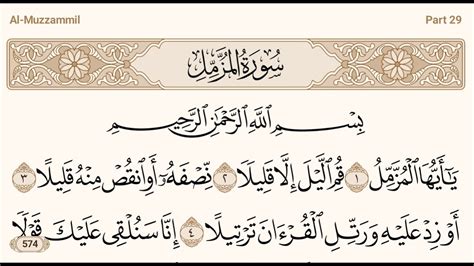 Al-Muzzammil Part 29
سُورَةُ المُزَّمِّلِ
بِسْمِ ٱللَّهِ ٱلرَّحْمَٰنِ ٱلرَّحِيمِ
يَٰٓأَيُّهَا ٱلْمُزَّمِّلُ ١ قُمِ ٱلَّيْلَ إِلَّا قَلِيلًا ٢ نِّصْفَهُۥٓ أَوِ ٱنقُصْ مِنْهُ قَلِيلًا ٣
أَوْ زِدْ عَلَيْهِ وَرَتِّلِ ٱلْقُرْءَانَ تَرْتِيلًا ٤ إِنَّا سَنُلْقِى عَلَيْكَ قَوْلًا
574